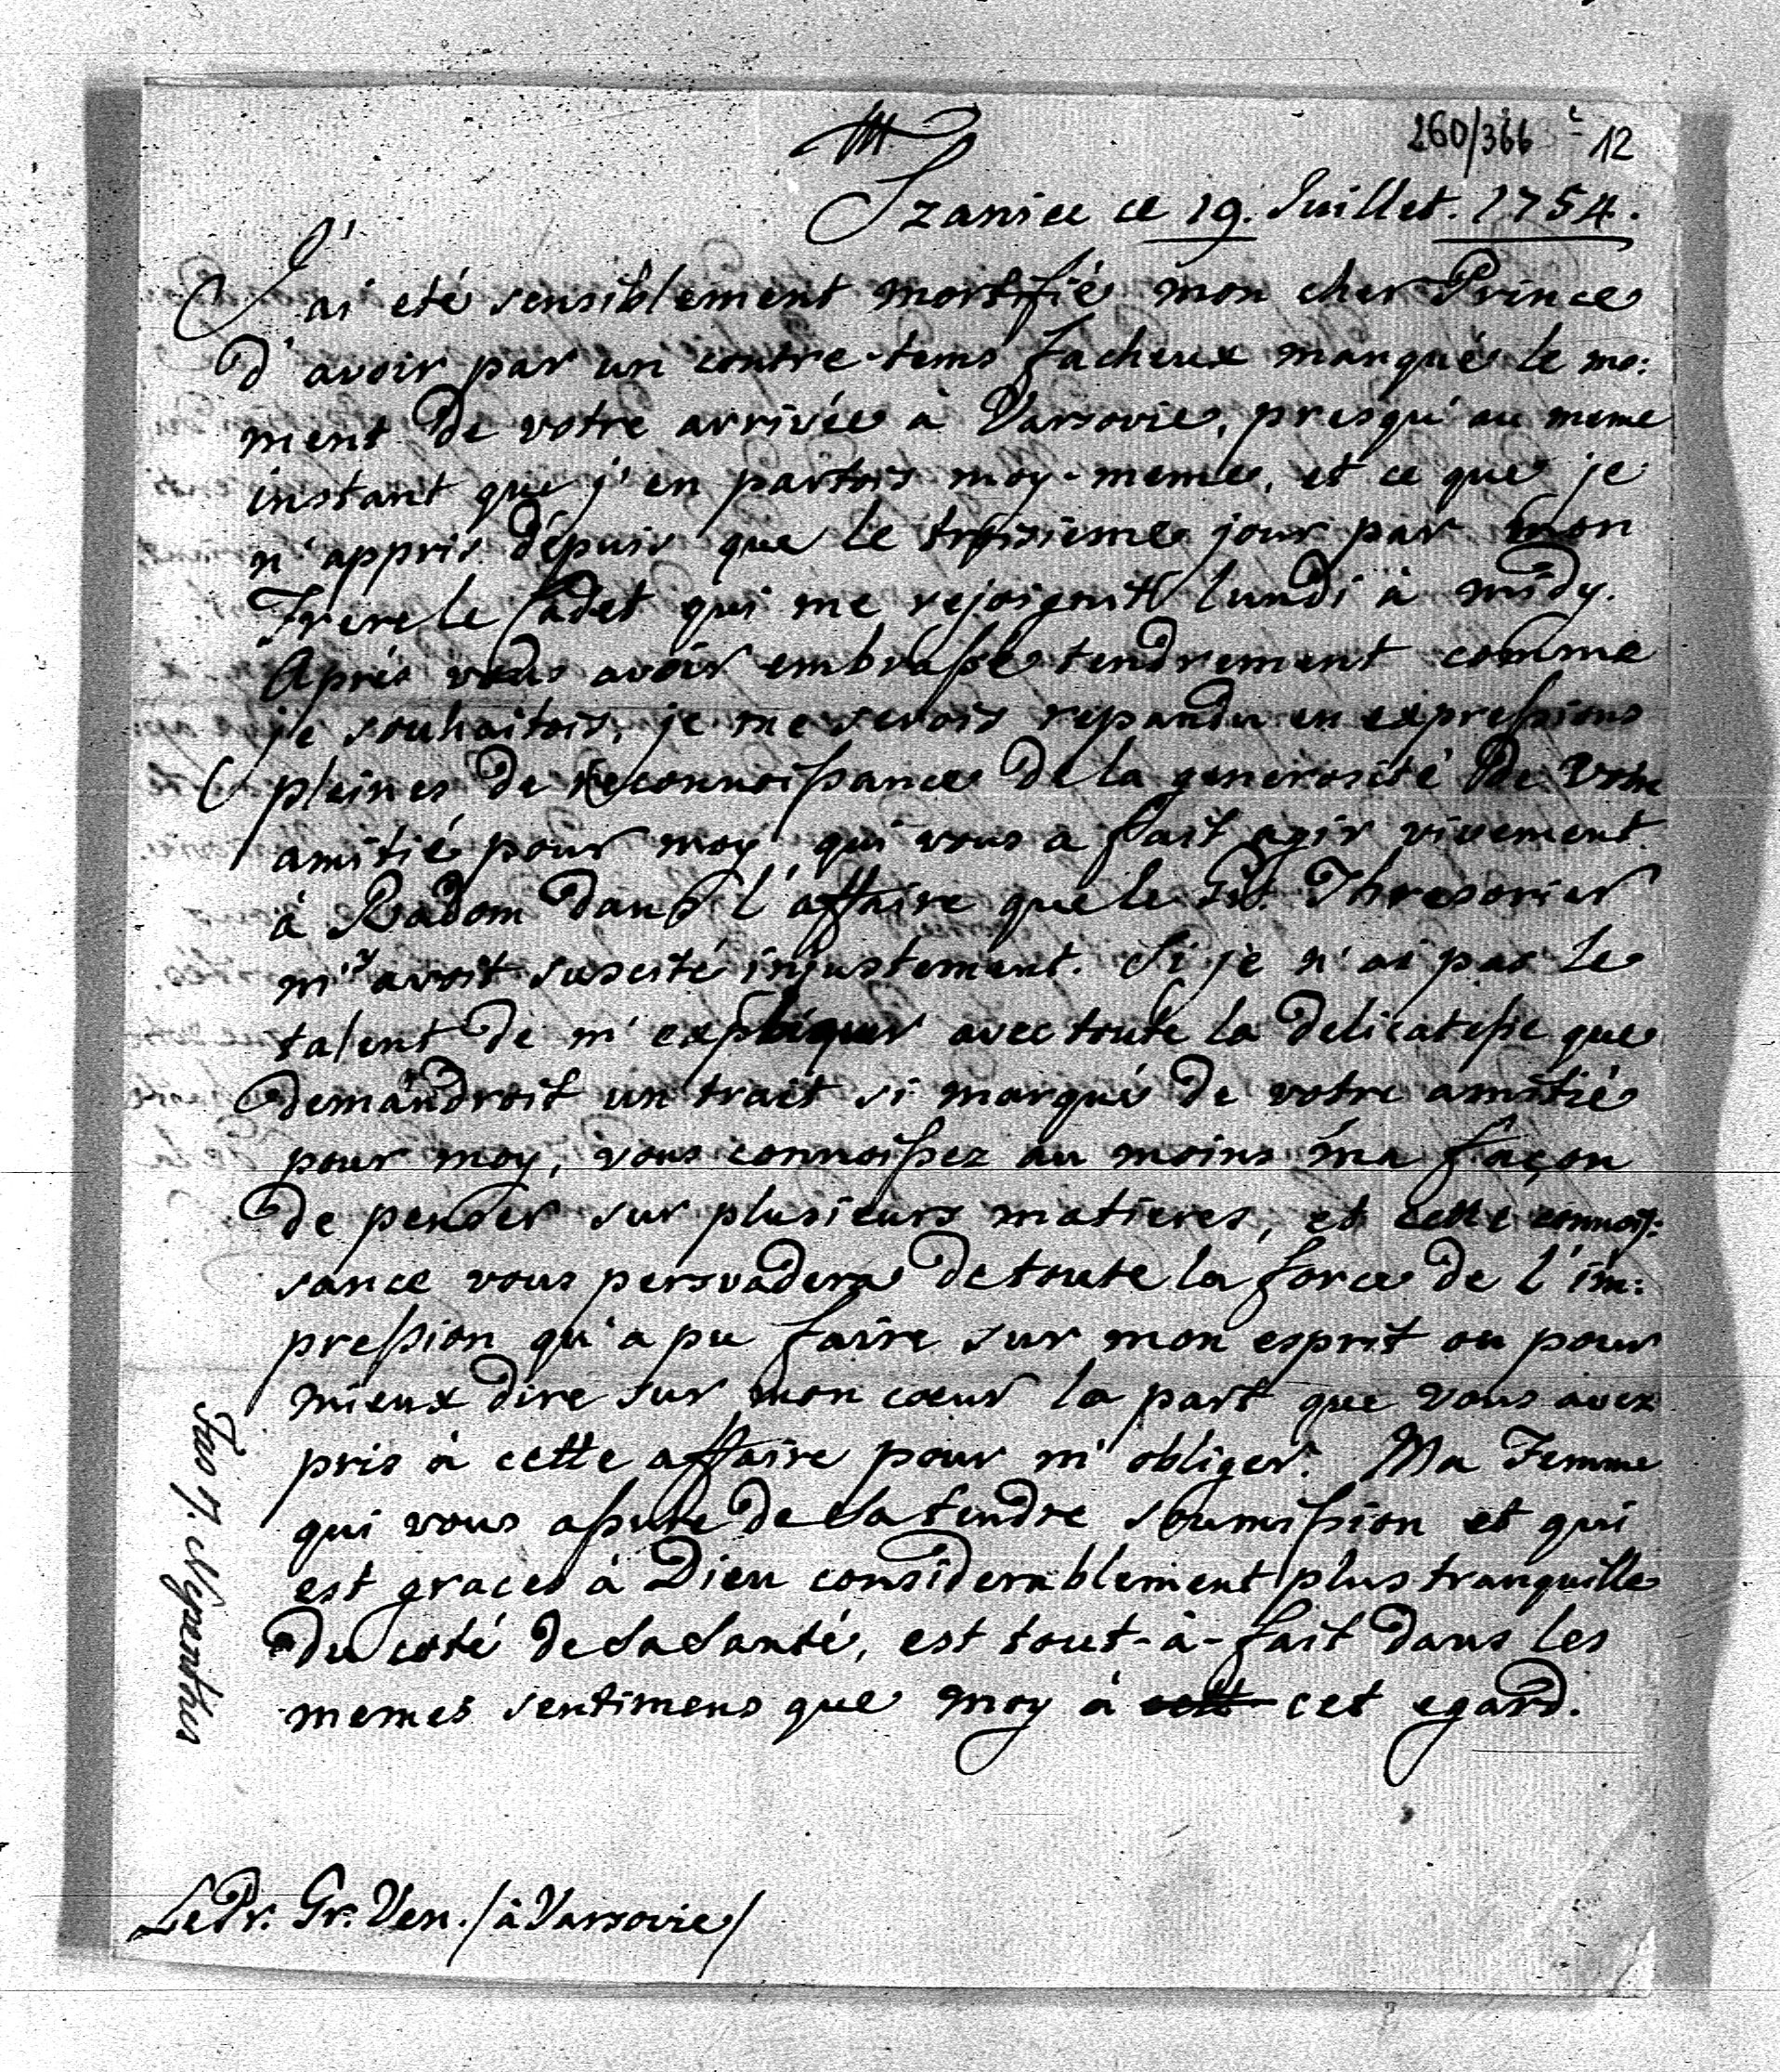 260/366 12
Szaniec ce 19. Juillet. 1754.
J'ai eté sensiblement mortifié mon cher Prince
d'avoir par un contre-tems facheux manqué le mo:
ment de votre arrivée à Varsovie, presqu'au meme
instant que j'en partois moy-meme, et ce que je
n'appris dépuis que le troisieme jour par mon
Frere le Cadet qui me rejoignit lundi à midy.
Aprés vous avoir embrassé tendrement comme
je souhaitois, je me serois repandu en expressions
pleines de reconnoissance de la generosité de votre
amitié pour moy, qui vous a fait agir vivement
à Radom dans l'affaire que le Gr. Thresorier
m'avoit suscité injustement. Si je n'ai pas le
talent de m'expliquer avec toute la delicatesse que
demandroit un trait si marqué de votre amitié
pour moy, vous connoissez au moins ma façon
de penser sur plusieurs matieres, et cette connois:
sance vous persvadera de toute la force de l'im:
pression qu'a pu faire sur mon esprit ou pour
mieux dire sur mon cœur la part que vous avez
pris à cette affaire pour m'obliger. Ma Femme
qui vous assure de sa tendre soumission et qui
est graces à Dieu considerablement plus tranquille
du coté de sa santé, est tout-à-fait dans les
memes sentimens que moy à cett cet egard.
Le Pr. Gr. Ven. /à Varsovie/